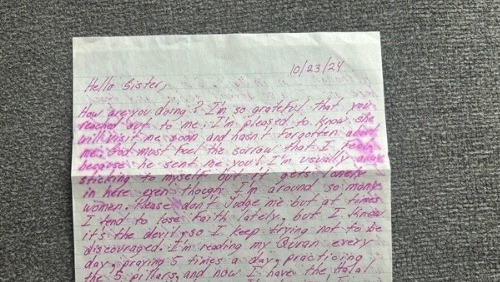 10/23/24
Hello Sister,
How are you doing? I'm so grateful that you
reached out to me. I'm pleased to know she
will visit me soon and hasn't forgotten about
me. God must feel the sorrow that I feel
because he sent me you! I'm usually
sticking to myself but it gets lonely
in here even though I'm around so many
women. Please don't judge me but at times
I tend to lose faith lately, but I know
it's the devil, so I keep trying not to be
discouraged. I'm reading my Quran every
day, praying 5 times a day, practicing
the 5 pillars, and now I have the